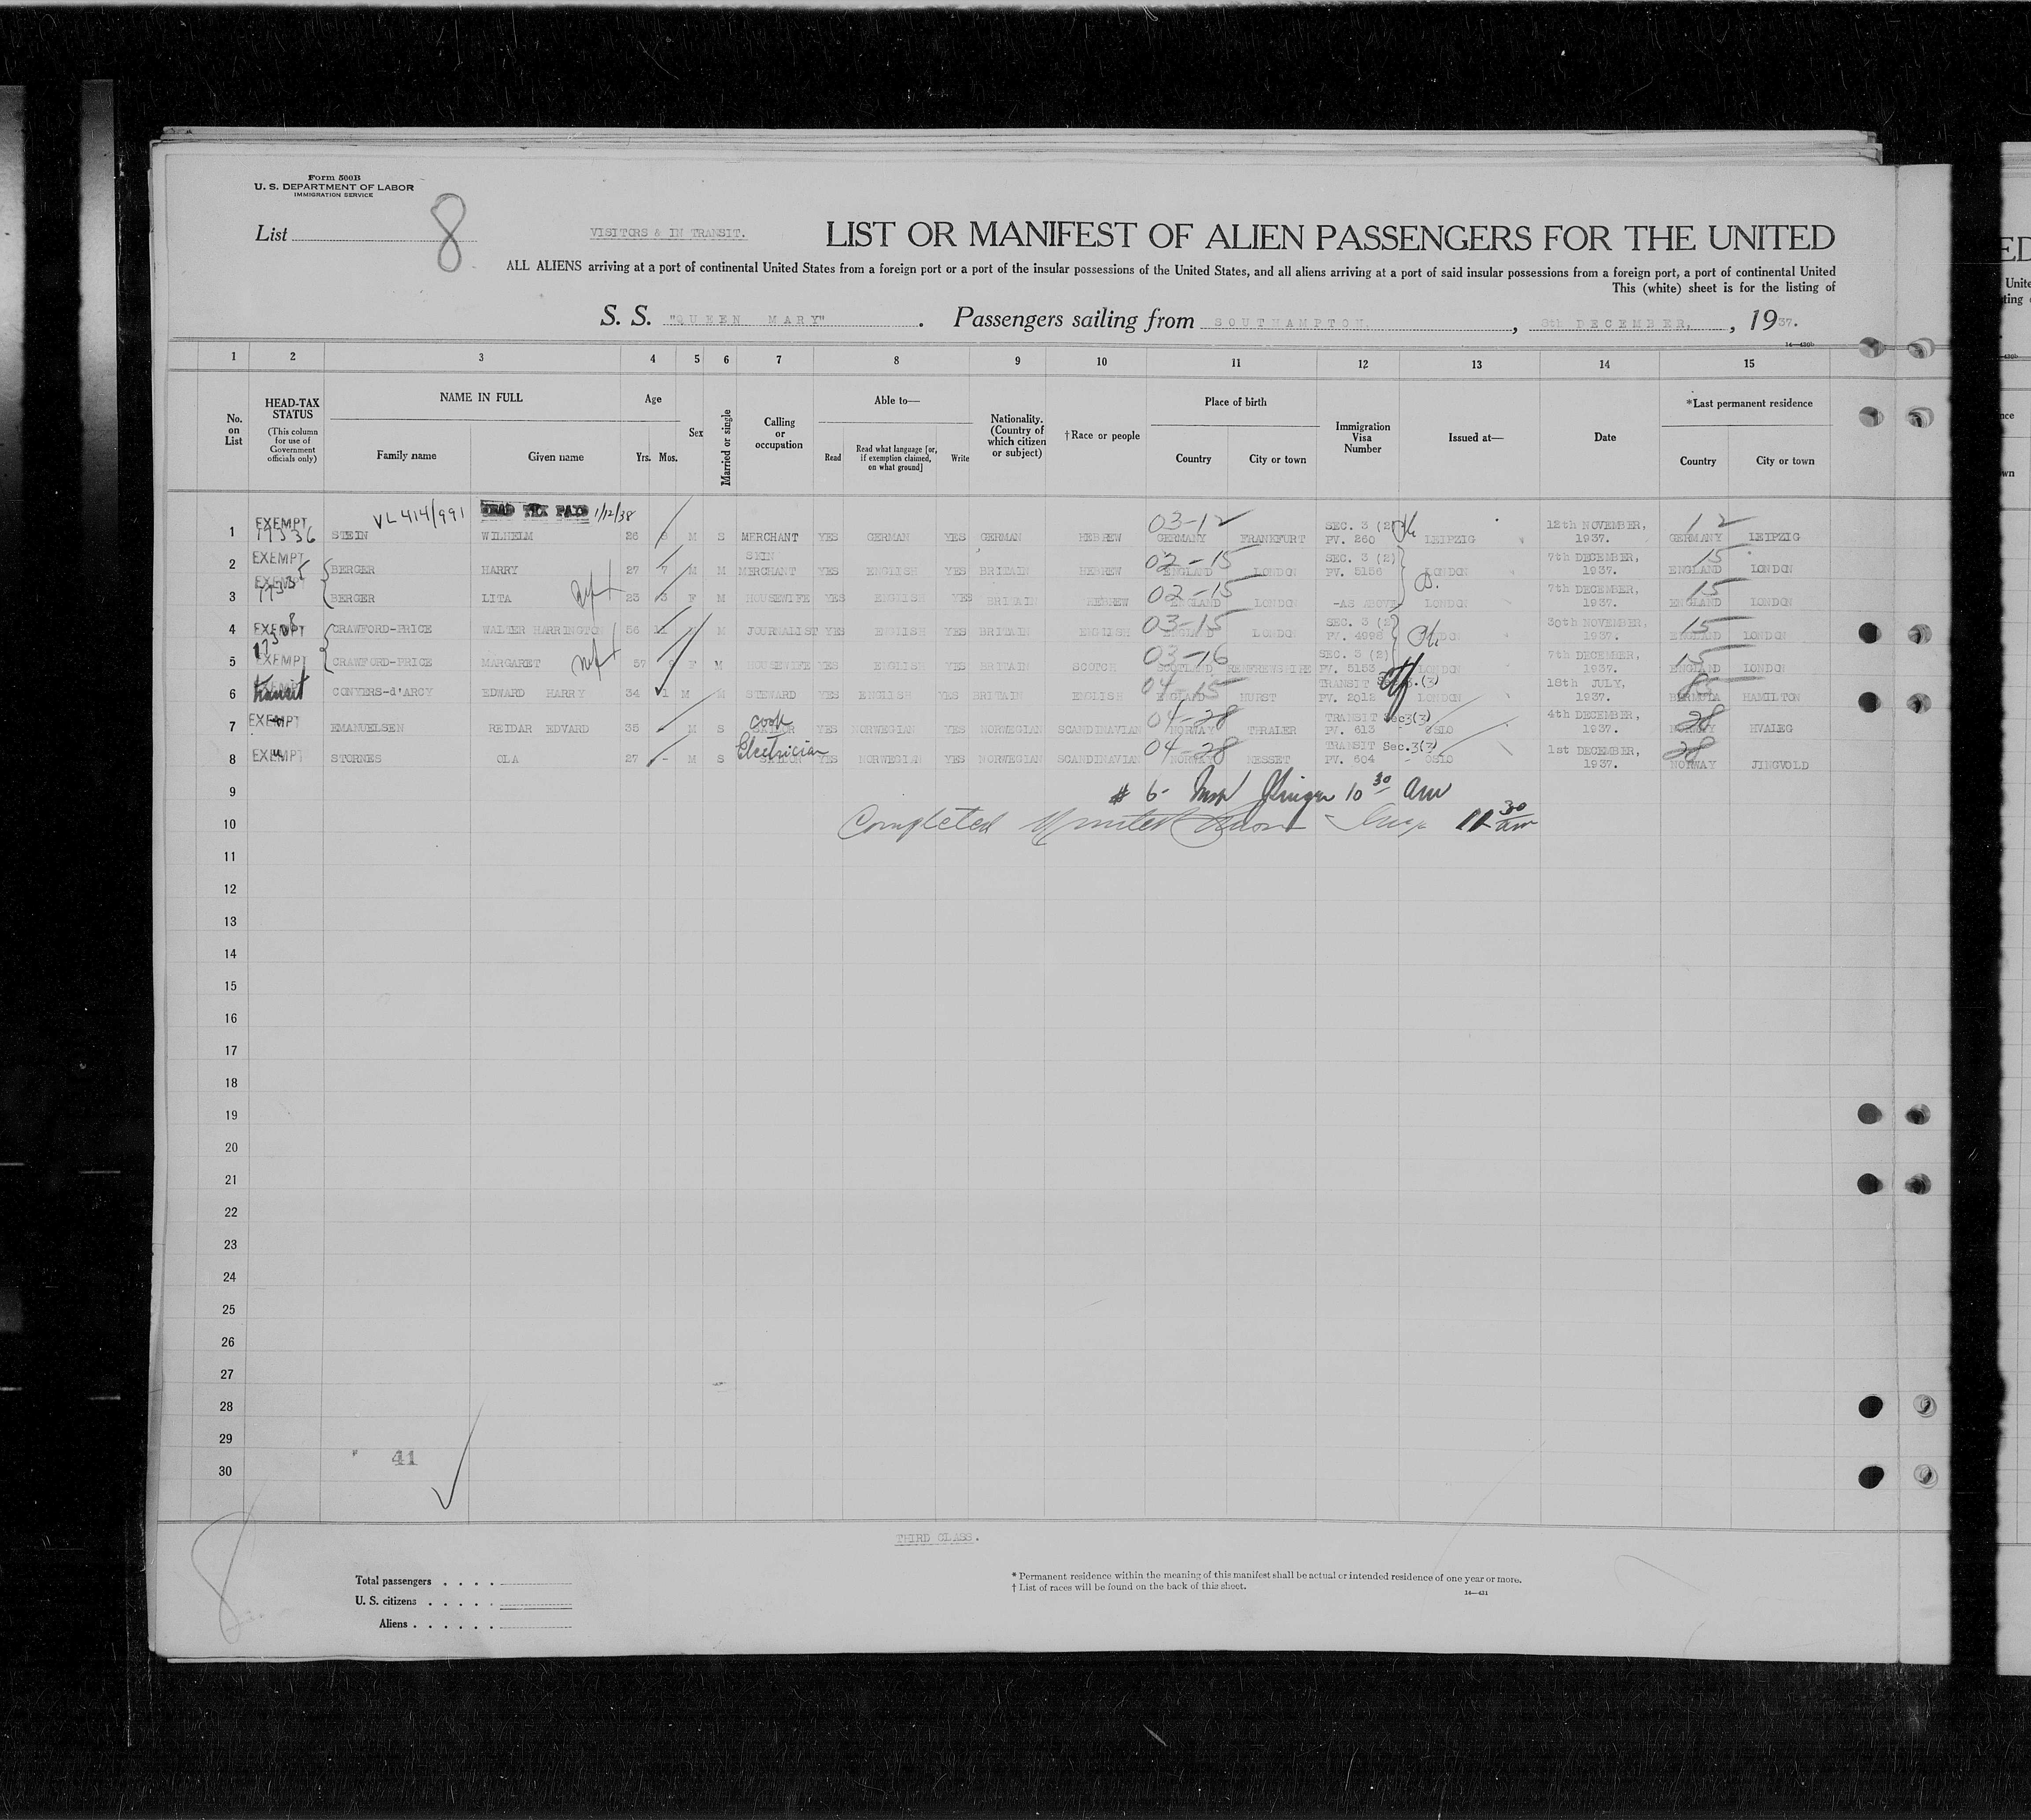 Form 500B
U. S. DEPARTMENT OF LABOR
IMMIGRATION SERVICE
List 8
VISITORS & IN TRANSIT.
LIST OR MANIFEST OF ALIEN PASSENGERS FOR THE UNITED
ALL ALIENS arriving at a port of continental United States from a foreign port or a port of the insular possessions of the United States, and all aliens arriving at a port of said insular possessions from a foreign port, a port of continental United
This (white) sheet is for the listing of
S. S. "QUEEN MARY". Passengers sailing from SOUTHAMPTON, 8th DECEMBER, 1937.
14—430b
1 2 3 4 5 6 7 8 9 10 11 12 13 14 15
No. on List
HEAD-TAX STATUS (This column for use of Government officials only)
NAME IN FULL Family name Given name
Age Yrs. Mos.
Sex
Married or single
Calling or occupation
Able to— Read Read what language [or, if exemption claimed, on what ground] Write
Nationality. (Country of which citizen or subject)
†Race or people
Place of birth Country City or town
Immigration Visa Number
Issued at—
Date
*Last permanent residence Country City or town
VL 414/991 HEAD TAX PAID 1/12/38 03-12 12
1 EXEMPT 17336 STEIN WILHELM 26 M S MERCHANT YES GERMAN YES GERMAN HEBREW GERMANY FRANKFURT SEC. 3 (2) PV. 260 LEIPZIG 12th NOVEMBER, 1937. GERMANY LEIPZIG
02-15 15
2 EXEMPT BERGER HARRY 27 7 M M SKIN MERCHANT YES ENGLISH YES BRITAIN HEBREW ENGLAND LONDON SEC. 3 (2) PV. 5156 LONDON 7th DECEMBER, 1937. ENGLAND LONDON
02-15 15
3 EXEMPT BERGER LITA 23 3 F M HOUSEWIFE YES ENGLISH YES BRITAIN HEBREW ENGLAND LONDON -AS ABOVE- LONDON 7th DECEMBER, 1937. ENGLAND LONDON
03-15 15
4 EXEMPT CRAWFORD-PRICE WALTER HARRINGTON 56 11 M JOURNALIST YES ENGLISH YES BRITAIN ENGLISH ENGLAND LONDON SEC. 3 (2) PV. 4996 LONDON 30th NOVEMBER, 1937. ENGLAND LONDON
03-16 15
5 EXEMPT CRAWFORD-PRICE MARGARET 57 9 F M HOUSEWIFE YES ENGLISH YES BRITAIN SCOTCH SCOTLAND RENFREWSHIRE SEC. 3 (2) PV. 5153 LONDON 7th DECEMBER, 1937. ENGLAND LONDON
04-15
6 Transit CONYERS-d'ARCY EDWARD HARRY 34 1 M M STEWARD YES ENGLISH YES BRITAIN ENGLISH ENGLAND HURST TRANSIT Sec. (3) PV. 2012 LONDON 18th JULY, 1937. BERMUDA HAMILTON
04-28 28
7 EXEMPT EMANUELSEN REIDAR EDVARD 35 - M S cook SAILOR YES NORWEGIAN YES NORWEGIAN SCANDINAVIAN NORWAY THRALER TRANSIT Sec 3(3) PV. 613 OSLO 4th DECEMBER, 1937. NORWAY HVALEG
04-28 28
8 EXEMPT STORNES OLA 27 - M S Electrician SAILOR YES NORWEGIAN YES NORWEGIAN SCANDINAVIAN NORWAY NESSET TRANSIT Sec. 3(3) PV. 604 OSLO 1st DECEMBER, 1937. NORWAY JINGVOLD
9 # 6- 10 30 am
10 Completed 11 30 am
11
12
13
14
15
16
17
18
19
20
21
22
23
24
25
26
27
28
29
30
41
THIRD CLASS.
Total passengers
U. S. citizens
Aliens
* Permanent residence within the meaning of this manifest shall be actual or intended residence of one year or more.
† List of races will be found on the back of this sheet.
14—431